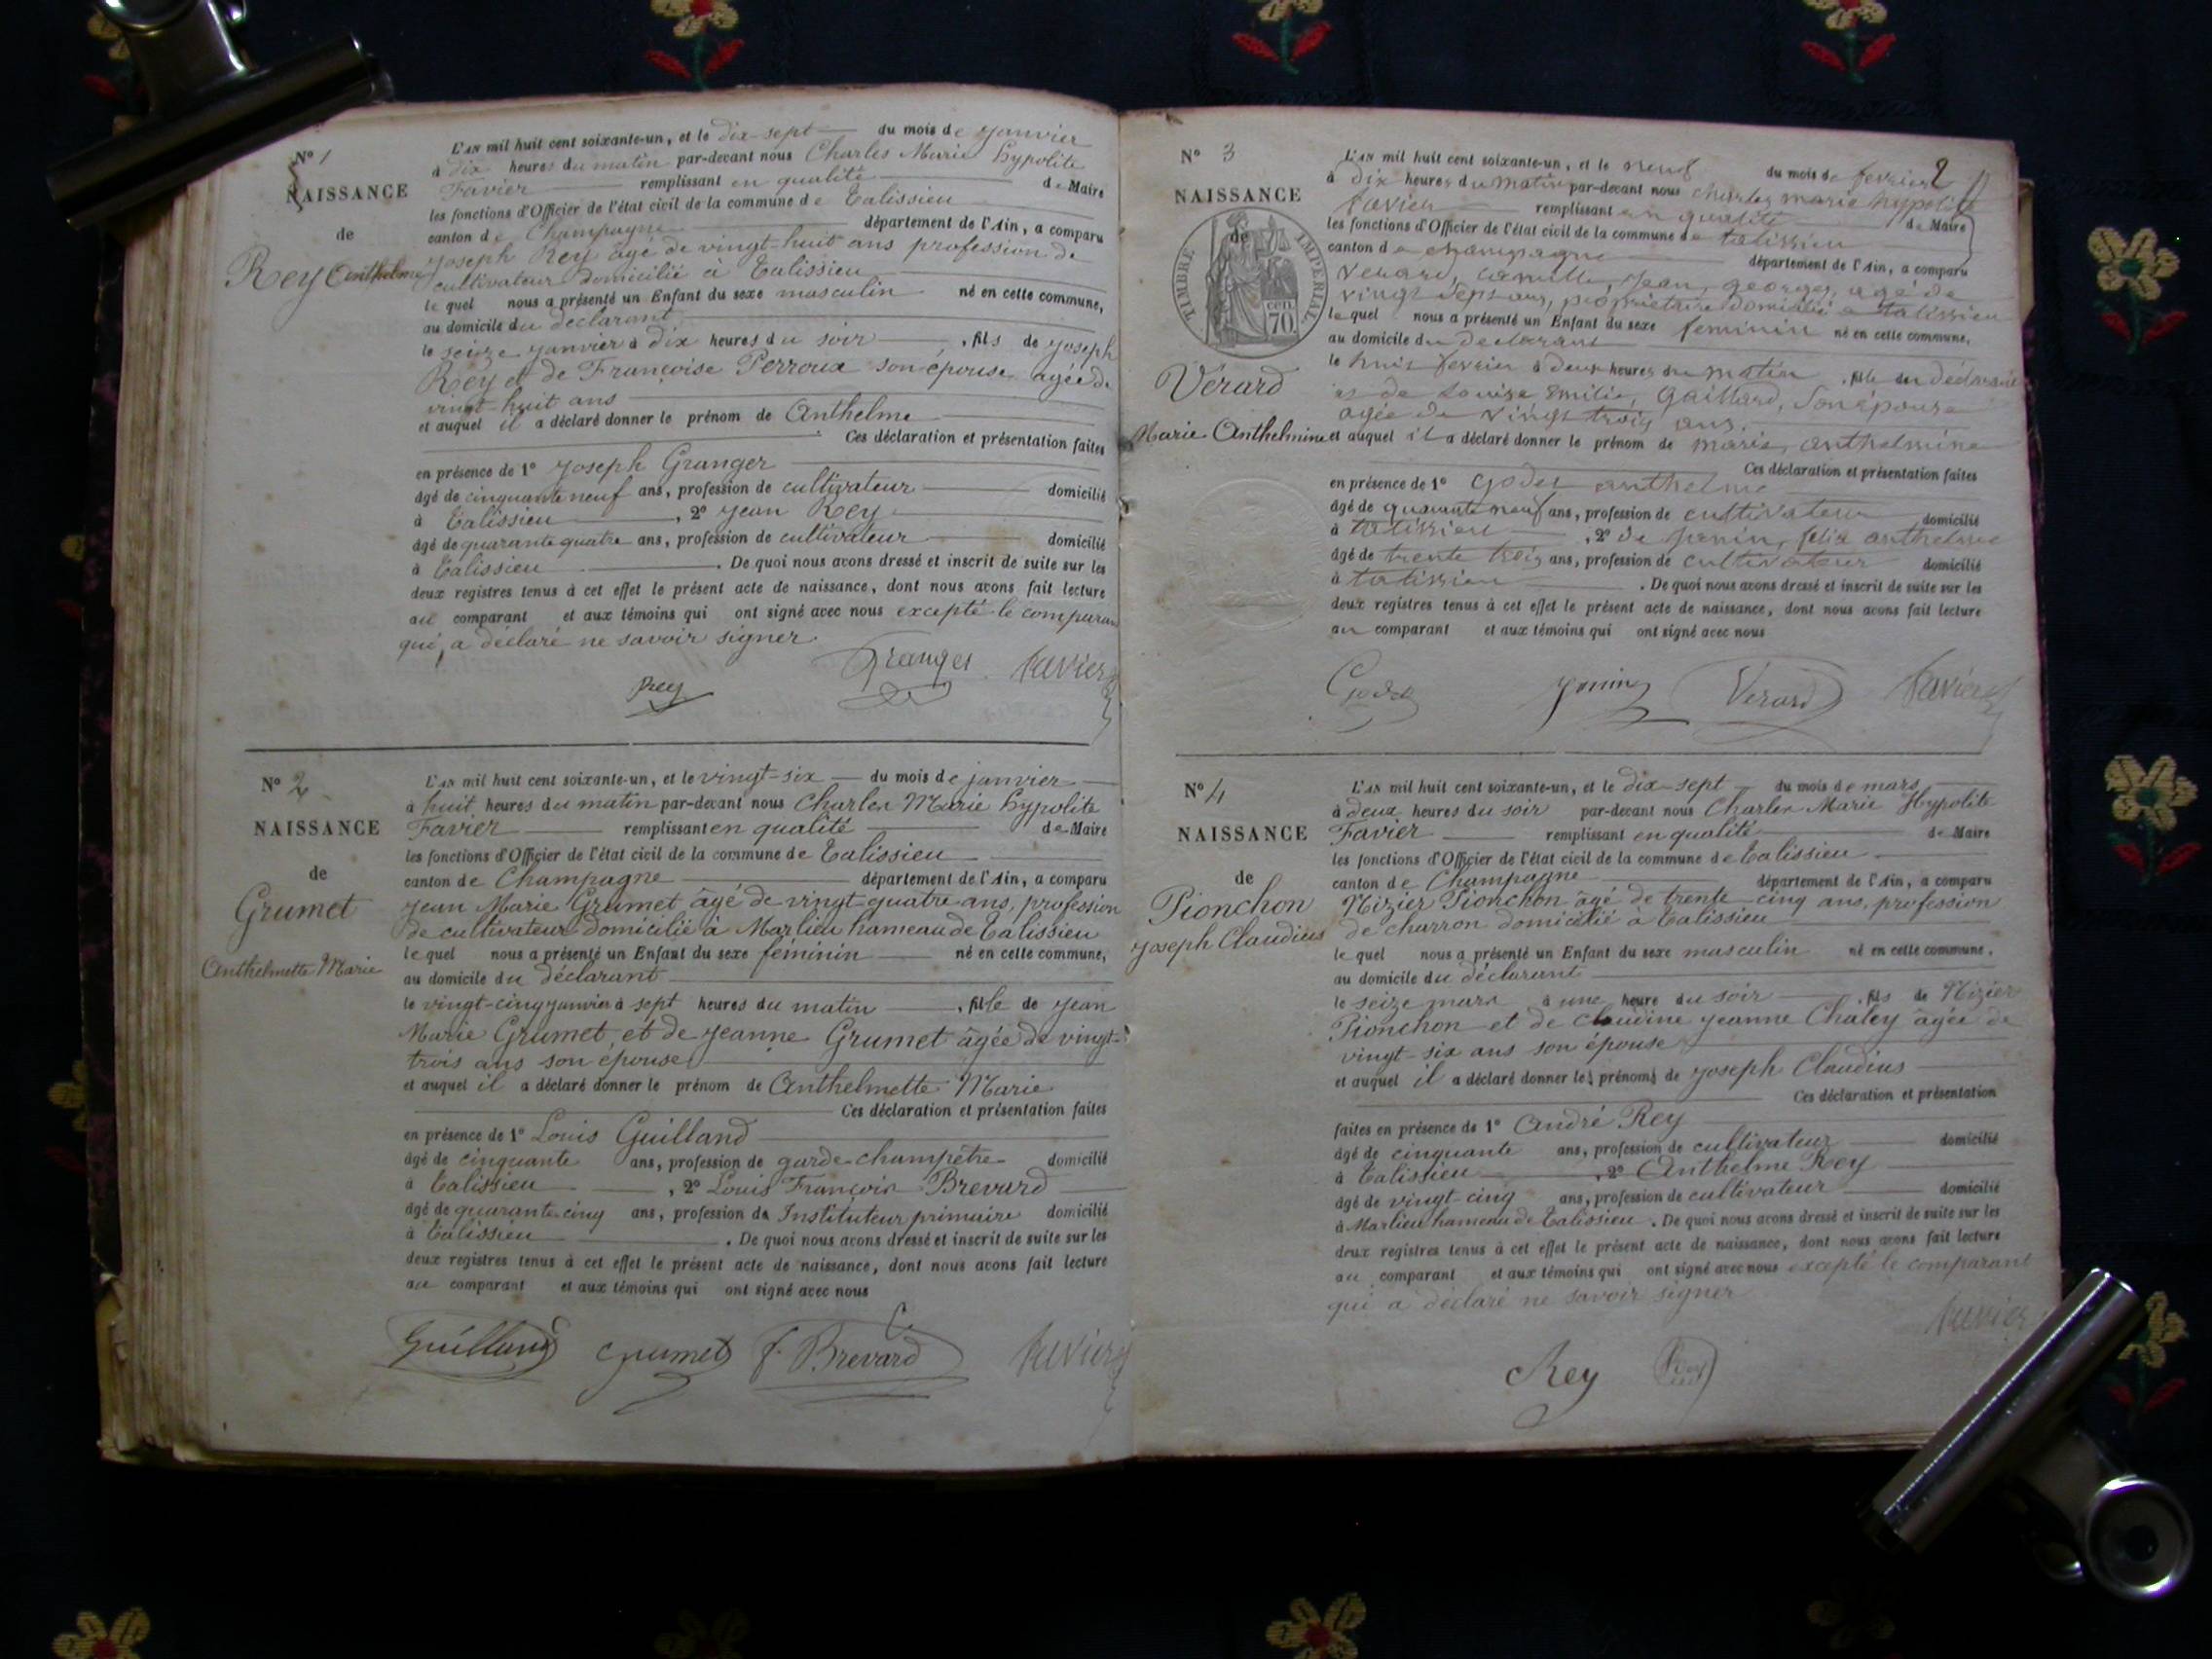 N° 1
NAISSANCE
de
Rey Anthelme
L'AN mil huit cent soixante-un, et le dix-sept du mois de janvier
à dix heures du matin par-devant nous Charles Marie Hypolite
Favier remplissant en qualité de Maire
les fonctions d'Officier de l'état civil de la commune de Talissieu
canton de Champagne département de l'Ain, a comparu
Joseph Rey âgé de vingt-huit ans profession de
cultivateur domicilié à Talissieu
le quel nous a présenté un Enfant du sexe masculin né en cette commune,
au domicile du déclarant
le seize janvier à dix heures du soir , fils de Joseph
Rey et de Françoise Perroux son épouse agée de
vingt-huit ans
et auquel il a déclaré donner le prénom de Anthelme
Ces déclaration et présentation faites
en présence de 1° Joseph Granger
âgé de cinquante neuf ans, profession de cultivateur domicilié
à Talissieu , 2° Jean Rey
âgé de quarante quatre ans, profession de cultivateur domicilié
à Talissieu . De quoi nous avons dressé et inscrit de suite sur les
deux registres tenus à cet effet le présent acte de naissance, dont nous avons fait lecture
au comparant et aux témoins qui ont signé avec nous excepté le comparant
qui a déclaré ne savoir signer
Rey Granger Favier
N° 2
NAISSANCE
de
Grumet
Anthelmette Marie
L'AN mil huit cent soixante-un, et le vingt-six du mois de janvier
à huit heures du matin par-devant nous Charles Marie Hypolite
Favier remplissant en qualité de Maire
les fonctions d'Officier de l'état civil de la commune de Talissieu
canton de Champagne département de l'Ain, a comparu
Jean Marie Grumet âgé de vingt-quatre ans, profession
de cultivateur domicilié à Marlieu hameau de Talissieu
le quel nous a présenté un Enfant du sexe féminin né en cette commune,
au domicile du déclarant
le vingt-cinq janvier à sept heures du matin , fille de Jean
Marie Grumet, et de Jeanne Grumet âgée de vingt-
trois ans son épouse
et auquel il a déclaré donner le prénom de Anthelmette Marie
Ces déclaration et présentation faites
en présence de 1° Louis Guilland
âgé de cinquante ans, profession de garde-champêtre domicilié
à Talissieu , 2° Louis François Brevard
âgé de quarante-cinq ans, profession de Instituteur primaire domicilié
à Talissieu . De quoi nous avons dressé et inscrit de suite sur les
deux registres tenus à cet effet le présent acte de naissance, dont nous avons fait lecture
au comparant et aux témoins qui ont signé avec nous
Guilland Grumet f. Brevard Favier
2
N° 3
NAISSANCE
de
TIMBRE IMPERIAL
70 cen
Vérard
Marie Anthelmine
L'AN mil huit cent soixante-un, et le neuf du mois de fevrier
à Dix heures du matin par-devant nous charles marie hyppolite
favier remplissant en qualité de Maire
les fonctions d'Officier de l'état civil de la commune de talissieu
canton de champagne département de l'Ain, a comparu
Verard, camille, Jean, georges, agé de
vingt sept ans, propriétaire domicilié a talissieu
le quel nous a présenté un Enfant du sexe feminin né en cette commune,
au domicile du declarant
le huit fevrier à deux heures du matin , fille du déclarant
et de Louise Emilie, Gaillard, son épouse
agée de vingt trois ans.
et auquel il a déclaré donner le prénom de marie, anthelmine
Ces déclaration et présentation faites
en présence de 1° Godet anthelme
âgé de quarante neuf ans, profession de cultivateur domicilié
à talissieu , 2° de Jenin, felix anthelme
âgé de trente trois ans, profession de cultivateur domicilié
à talissieu . De quoi nous avons dressé et inscrit de suite sur les
deux registres tenus à cet effet le présent acte de naissance, dont nous avons fait lecture
au comparant et aux témoins qui ont signé avec nous
Godet Verard Favier
N° 4
NAISSANCE
de
Pionchon
Joseph Claudius
L'AN mil huit cent soixante-un, et le dix-sept du mois de mars
à deux heures du soir par-devant nous Charles Marie Hypolite
Favier remplissant en qualité de Maire
les fonctions d'Officier de l'état civil de la commune de Talissieu
canton de Champagne département de l'Ain, a comparu
Nizier Pionchon âgé de trente-cinq ans, profession
de charron domicilié à Talissieu
le quel nous a présenté un Enfant du sexe masculin né en cette commune,
au domicile du déclarant
le seize mars à une heure du soir , fils de Nizier
Pionchon et de Claudine Jeanne Chaley âgée de
vingt-six ans son épouse
et auquel il a déclaré donner les prénoms de Joseph Claudius
Ces déclaration et présentation
faites en présence de 1° André Rey
âgé de cinquante ans, profession de cultivateur domicilié
à Talissieu , 2° Anthelme Rey
âgé de vingt-cinq ans, profession de cultivateur domicilié
à Marlieu hameau de Talissieu . De quoi nous avons dressé et inscrit de suite sur les
deux registres tenus à cet effet le présent acte de naissance, dont nous avons fait lecture
au comparant et aux témoins qui ont signé avec nous excepté le comparant
qui a déclaré ne savoir signer
Favier
Rey